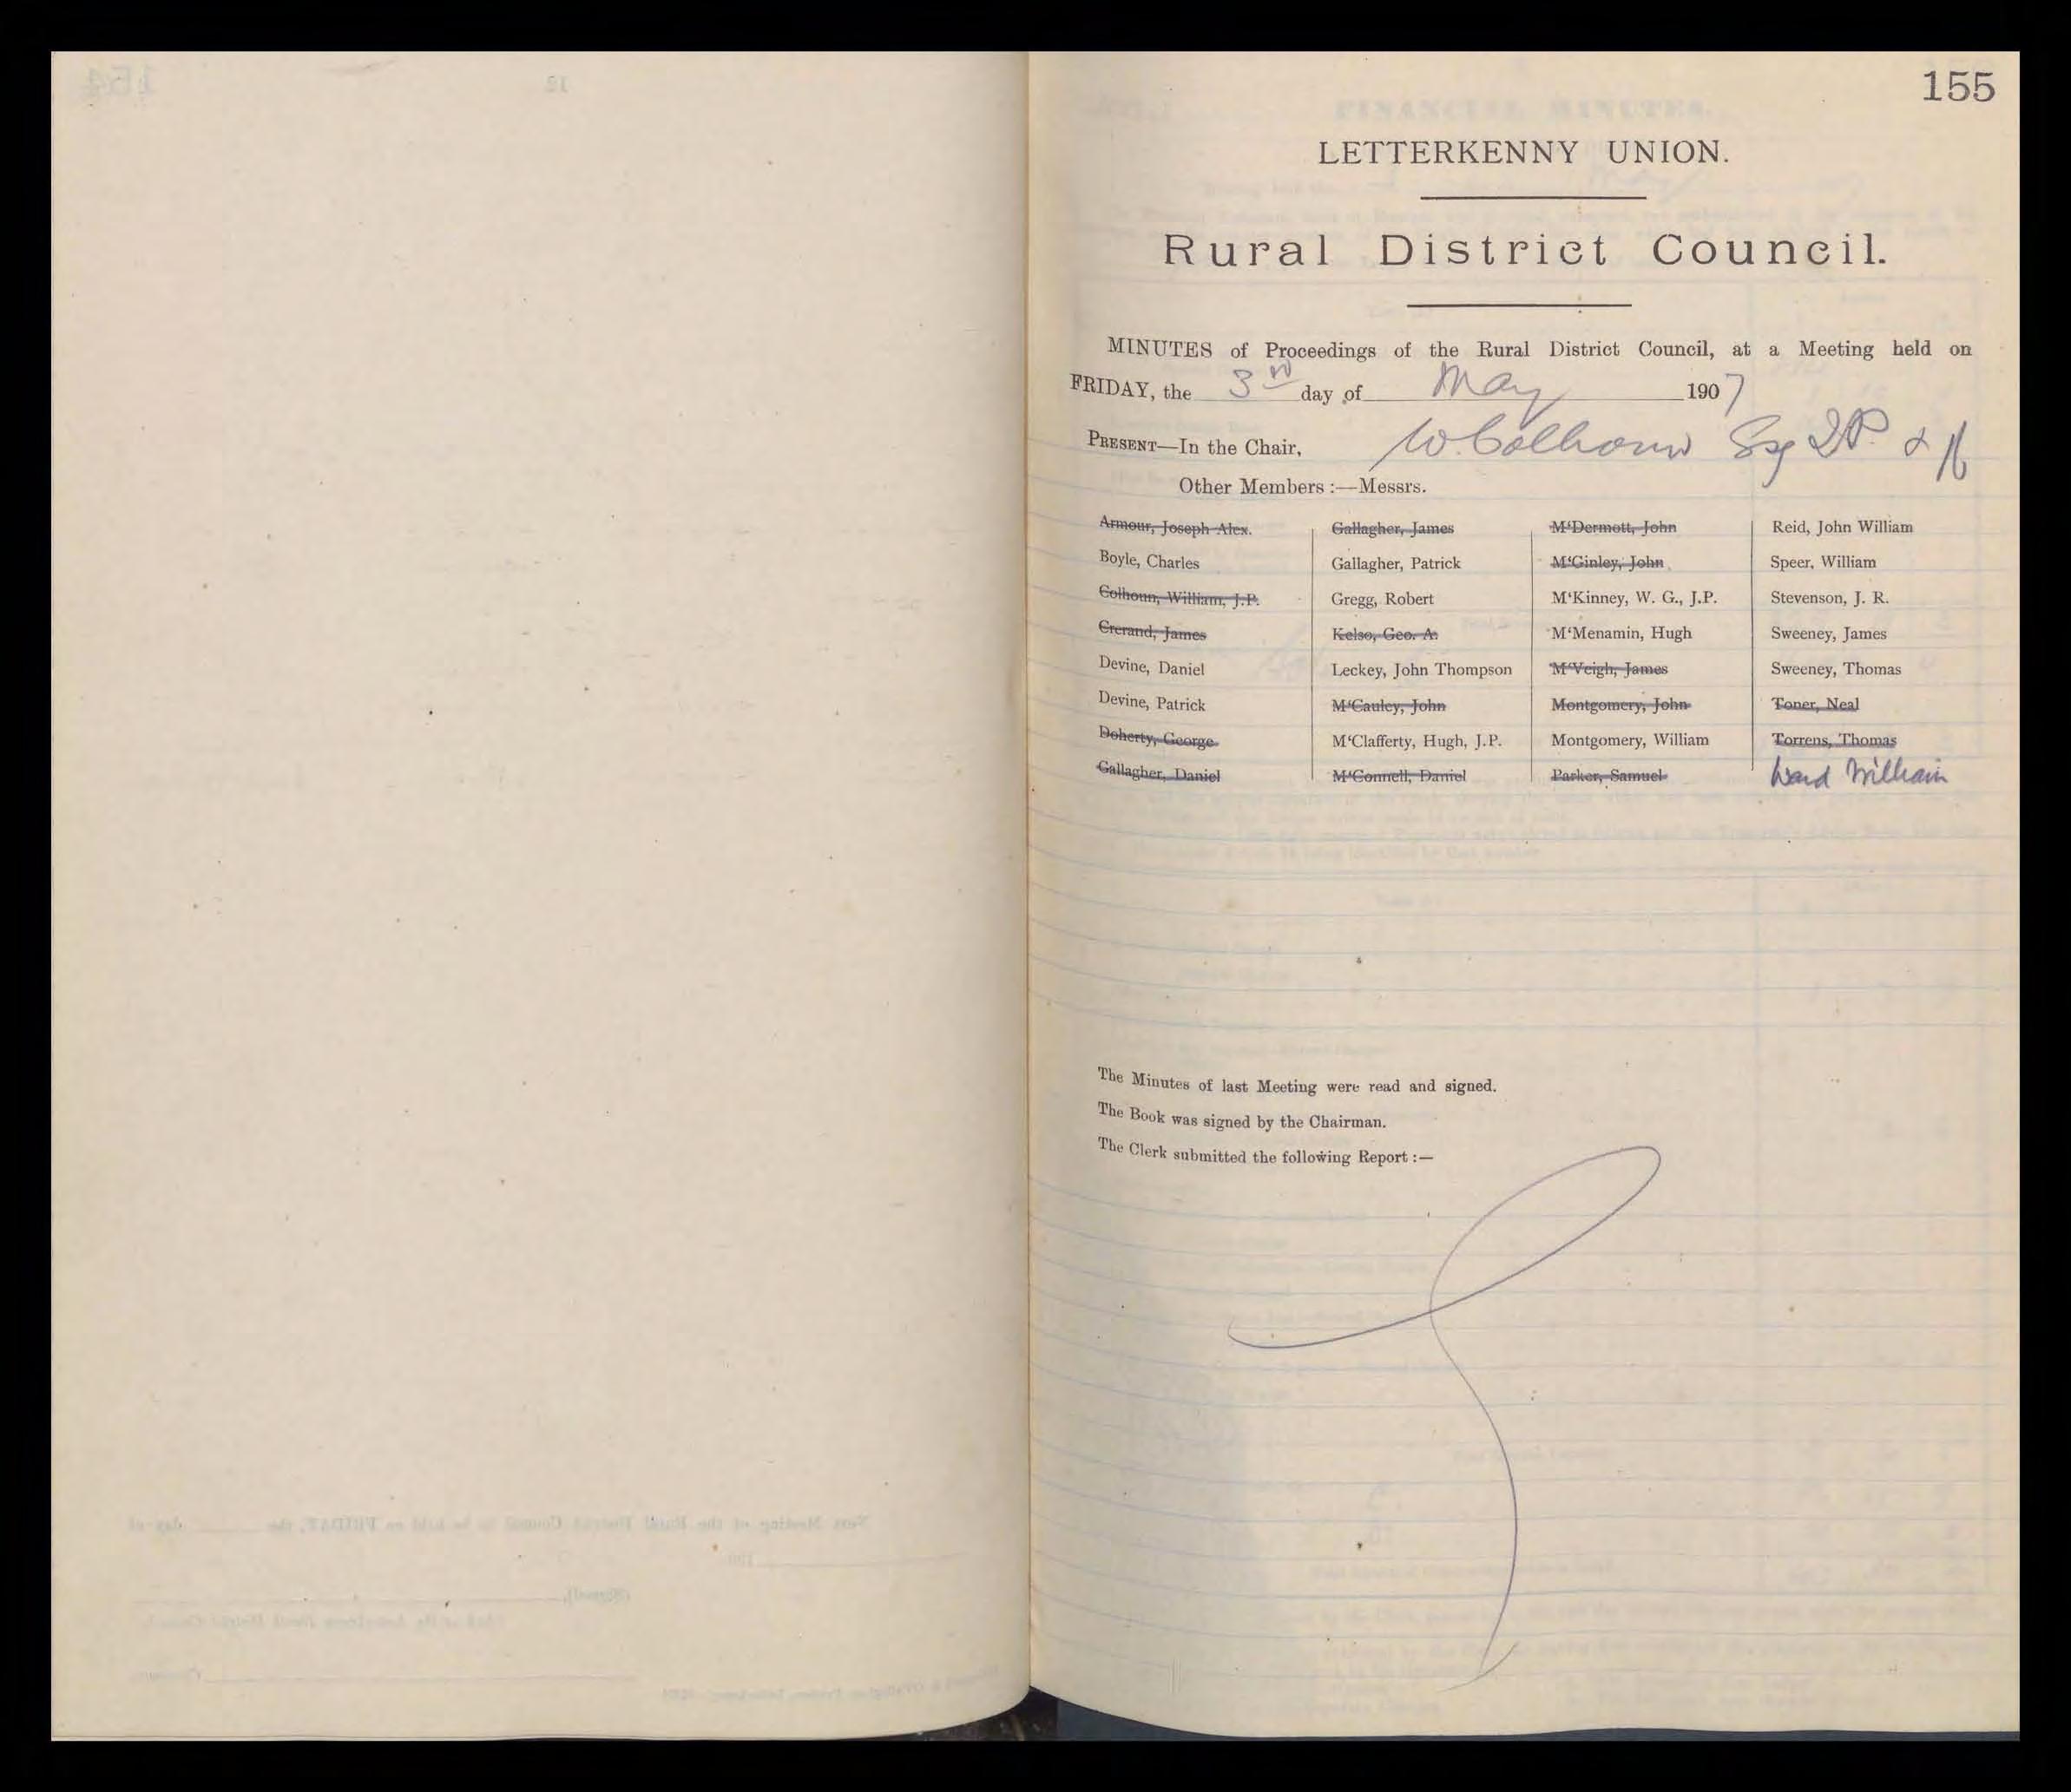 155
LETTERKENNY UNION.
Rural District Council.
MINUTES of Proceedings of the Rural District Council, at a Meeting held on
FRIDAY, the 3rd day of May 1907
PRESENT—In the Chair, W. Colhoun Esq J.P.
Other Members :—Messrs.
Armour, Joseph Alex. Gallagher, James M'Dermott, John Reid, John William
Boyle, Charles Gallagher, Patrick M'Ginley, John Speer, William
Colhoun, William, J.P. Gregg, Robert M'Kinney, W. G., J.P. Stevenson, J. R.
Crerand, James Kelso, Geo. A. M'Menamin, Hugh Sweeney, James
Devine, Daniel Leckey, John Thompson M'Veigh, James Sweeney, Thomas
Devine, Patrick M'Cauley, John Montgomery, John Toner, Neal
Doherty, George M'Clafferty, Hugh, J.P. Montgomery, William Torrens, Thomas
Gallagher, Daniel M'Connell, Daniel Parker, Samuel Ward William
The Minutes of last Meeting were read and signed.
The Book was signed by the Chairman.
The Clerk submitted the following Report :—